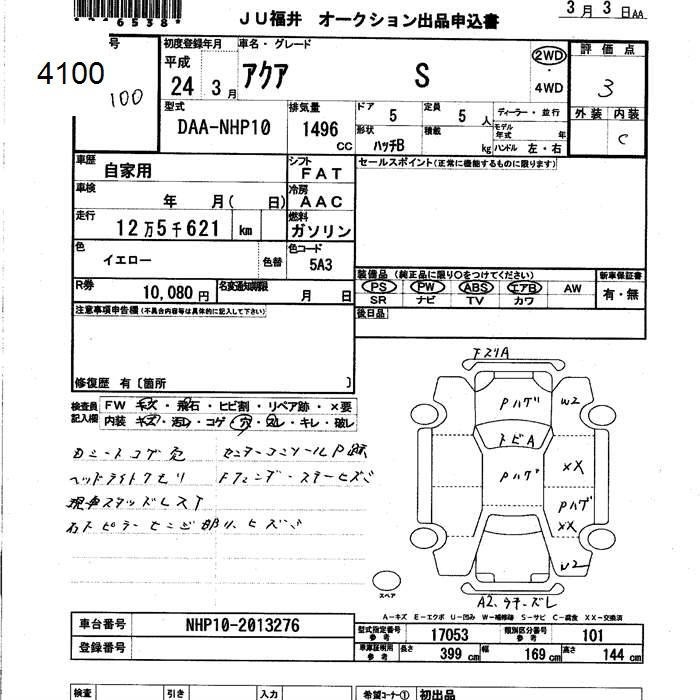 6538
3月3日AA
JU福井 オークション出品申込書
号
4100
100
初度登録年月
平成
24 3月
車名・グレード
アクア S
2WD
・
4WD
評価点
3
外装 内装
C
型式
DAA-NHP10
排気量
1496 cc
ドア 5
定員 5 人
ディーラー・並行
形状 ハッチB
積載 kg
モデル年式 年
ハンドル 左・右
車歴
自家用
シフト
FAT
セールスポイント(正常に機能するものに限ります)
車検
年 月( 日)
冷房
AAC
走行
12万5千621 km
燃料
ガソリン
色
イエロー
色替
色コード
5A3
装備品(純正品に限り○をつけてください)
新車保証書
PS PW ABS エアB AW
SR ナビ TV カワ
有・無
R券
10,080円
名変通知期限
月 日
後日品
注意事項申告欄(不具合内容等は具体的に記入して下さい)
修復歴 有〔箇所 〕
検査員記入欄
FW キズ・飛石・ヒビ割・リペア跡・×要
内装 キズ・汚レ・コゲ・穴・スレ・キレ・破レ
下スリA
Pハゲ
W2
トビA
XX
Pハゲ
Pハゲ
XX
W2
スペア
シートコゲ穴 センターコンソールP跡
ヘッドライトクモリ
現車スタッドレスT
A-キズ E-エクボ U-凹み W-補修跡 S-サビ C-腐食 XX-交換済
車台番号
NHP10-2013276
登録番号
型式指定番号 参考
17053
類別区分番号 参考
101
車庫証明用 参考
長さ 399 cm
幅 169 cm
高さ 144 cm
検査
引き
入力
希望コーナー①
初出品